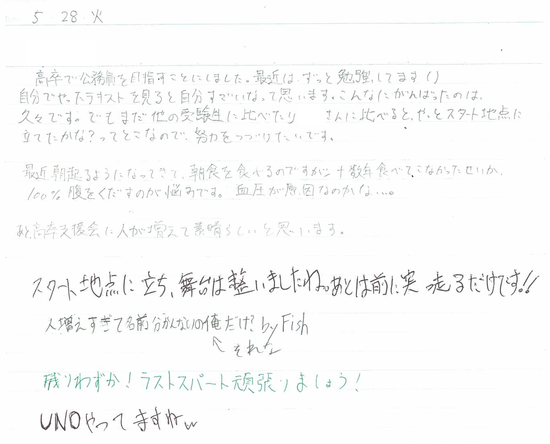 5 28 火
高卒で公務員を目指すことにしました。最近は、ずっと勉強してます()
自分でやったテキストを見ると自分すごいな。って思います。こんなにがんばったのは、
久々です。でもまだ他の受験生に比べたり さんに比べると、やっとスタート地点に
立てたかな?ってとこなので、努力をつづけたいです。
最近朝起るようになってきて、朝食を食べるのですが、十数年食べてこなかったせいか、
100%腹をくだすのが悩みです。血圧が原因なのかな…。
高卒支援会に人が増えて素晴らしいと思います。
スタート地点に立ち、舞台は整いましたね。あとは前に突っ走るだけです!!
人増えすぎて名前分かんないの俺だけ? by Fish
それな
残りわずか!ラストスパート頑張りましょう!
UNOやってますねw